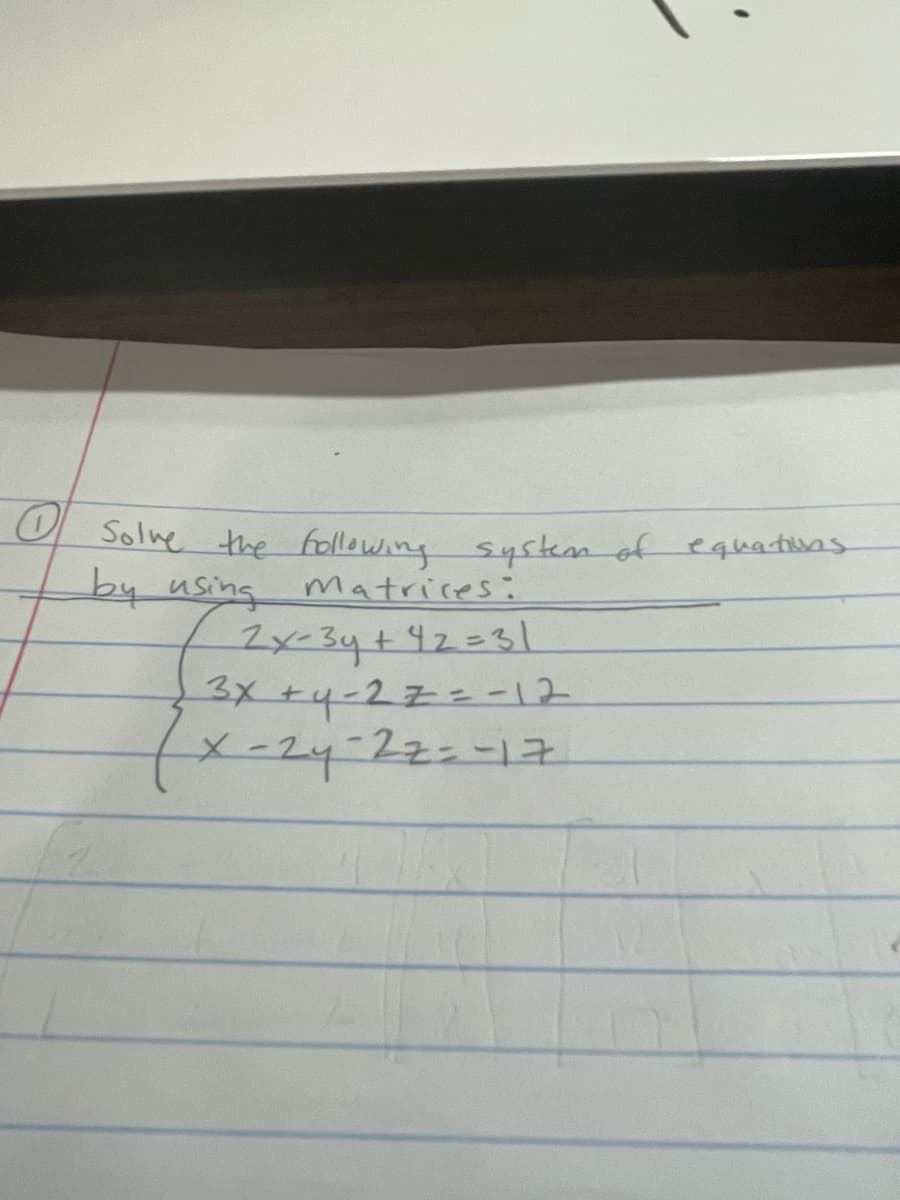 ① Solve the following system of equations
by using matrices:
2x-3y+4z=31
3x+y-2z=-12
x-2y-2z=-17